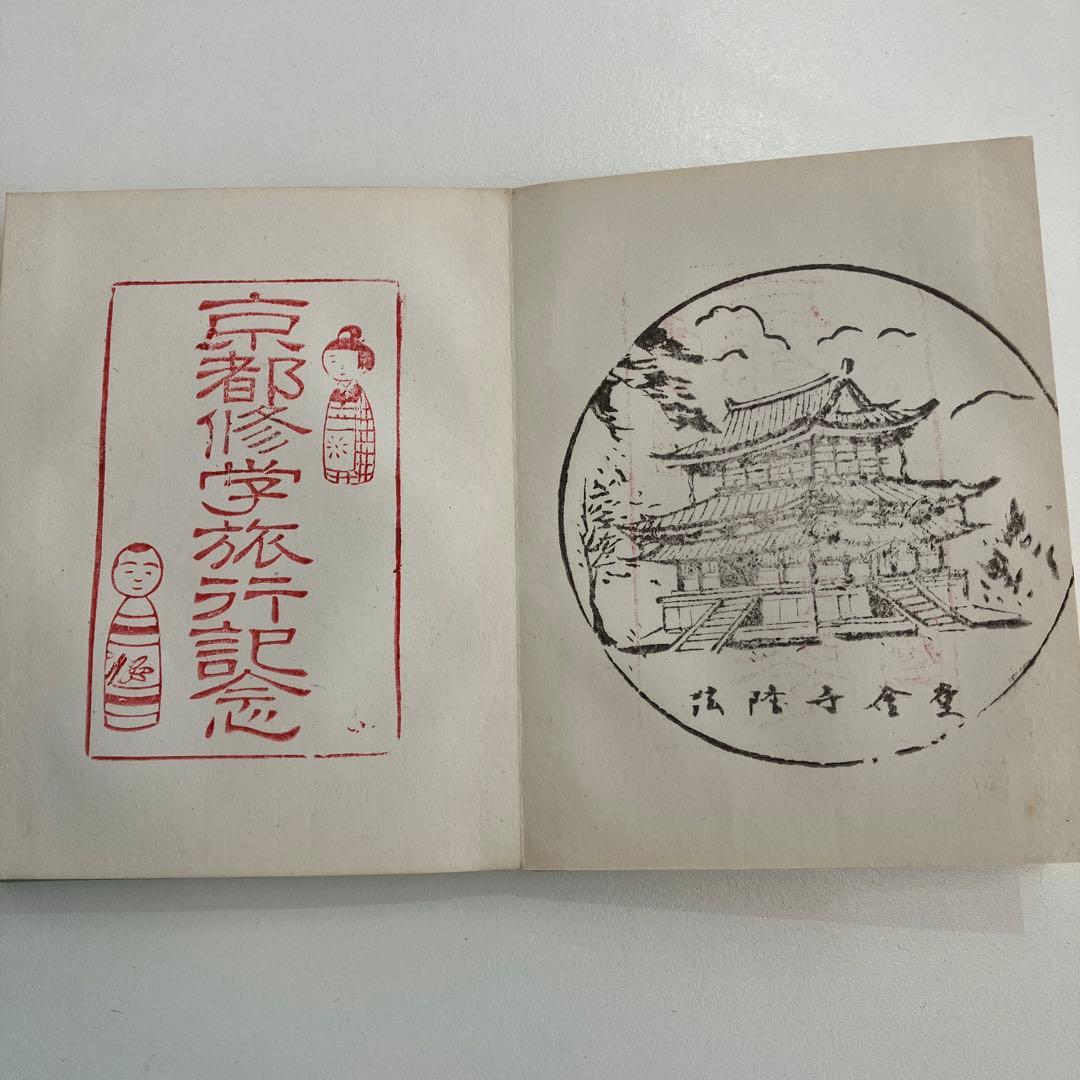 京都修学旅行記念
法隆寺金堂